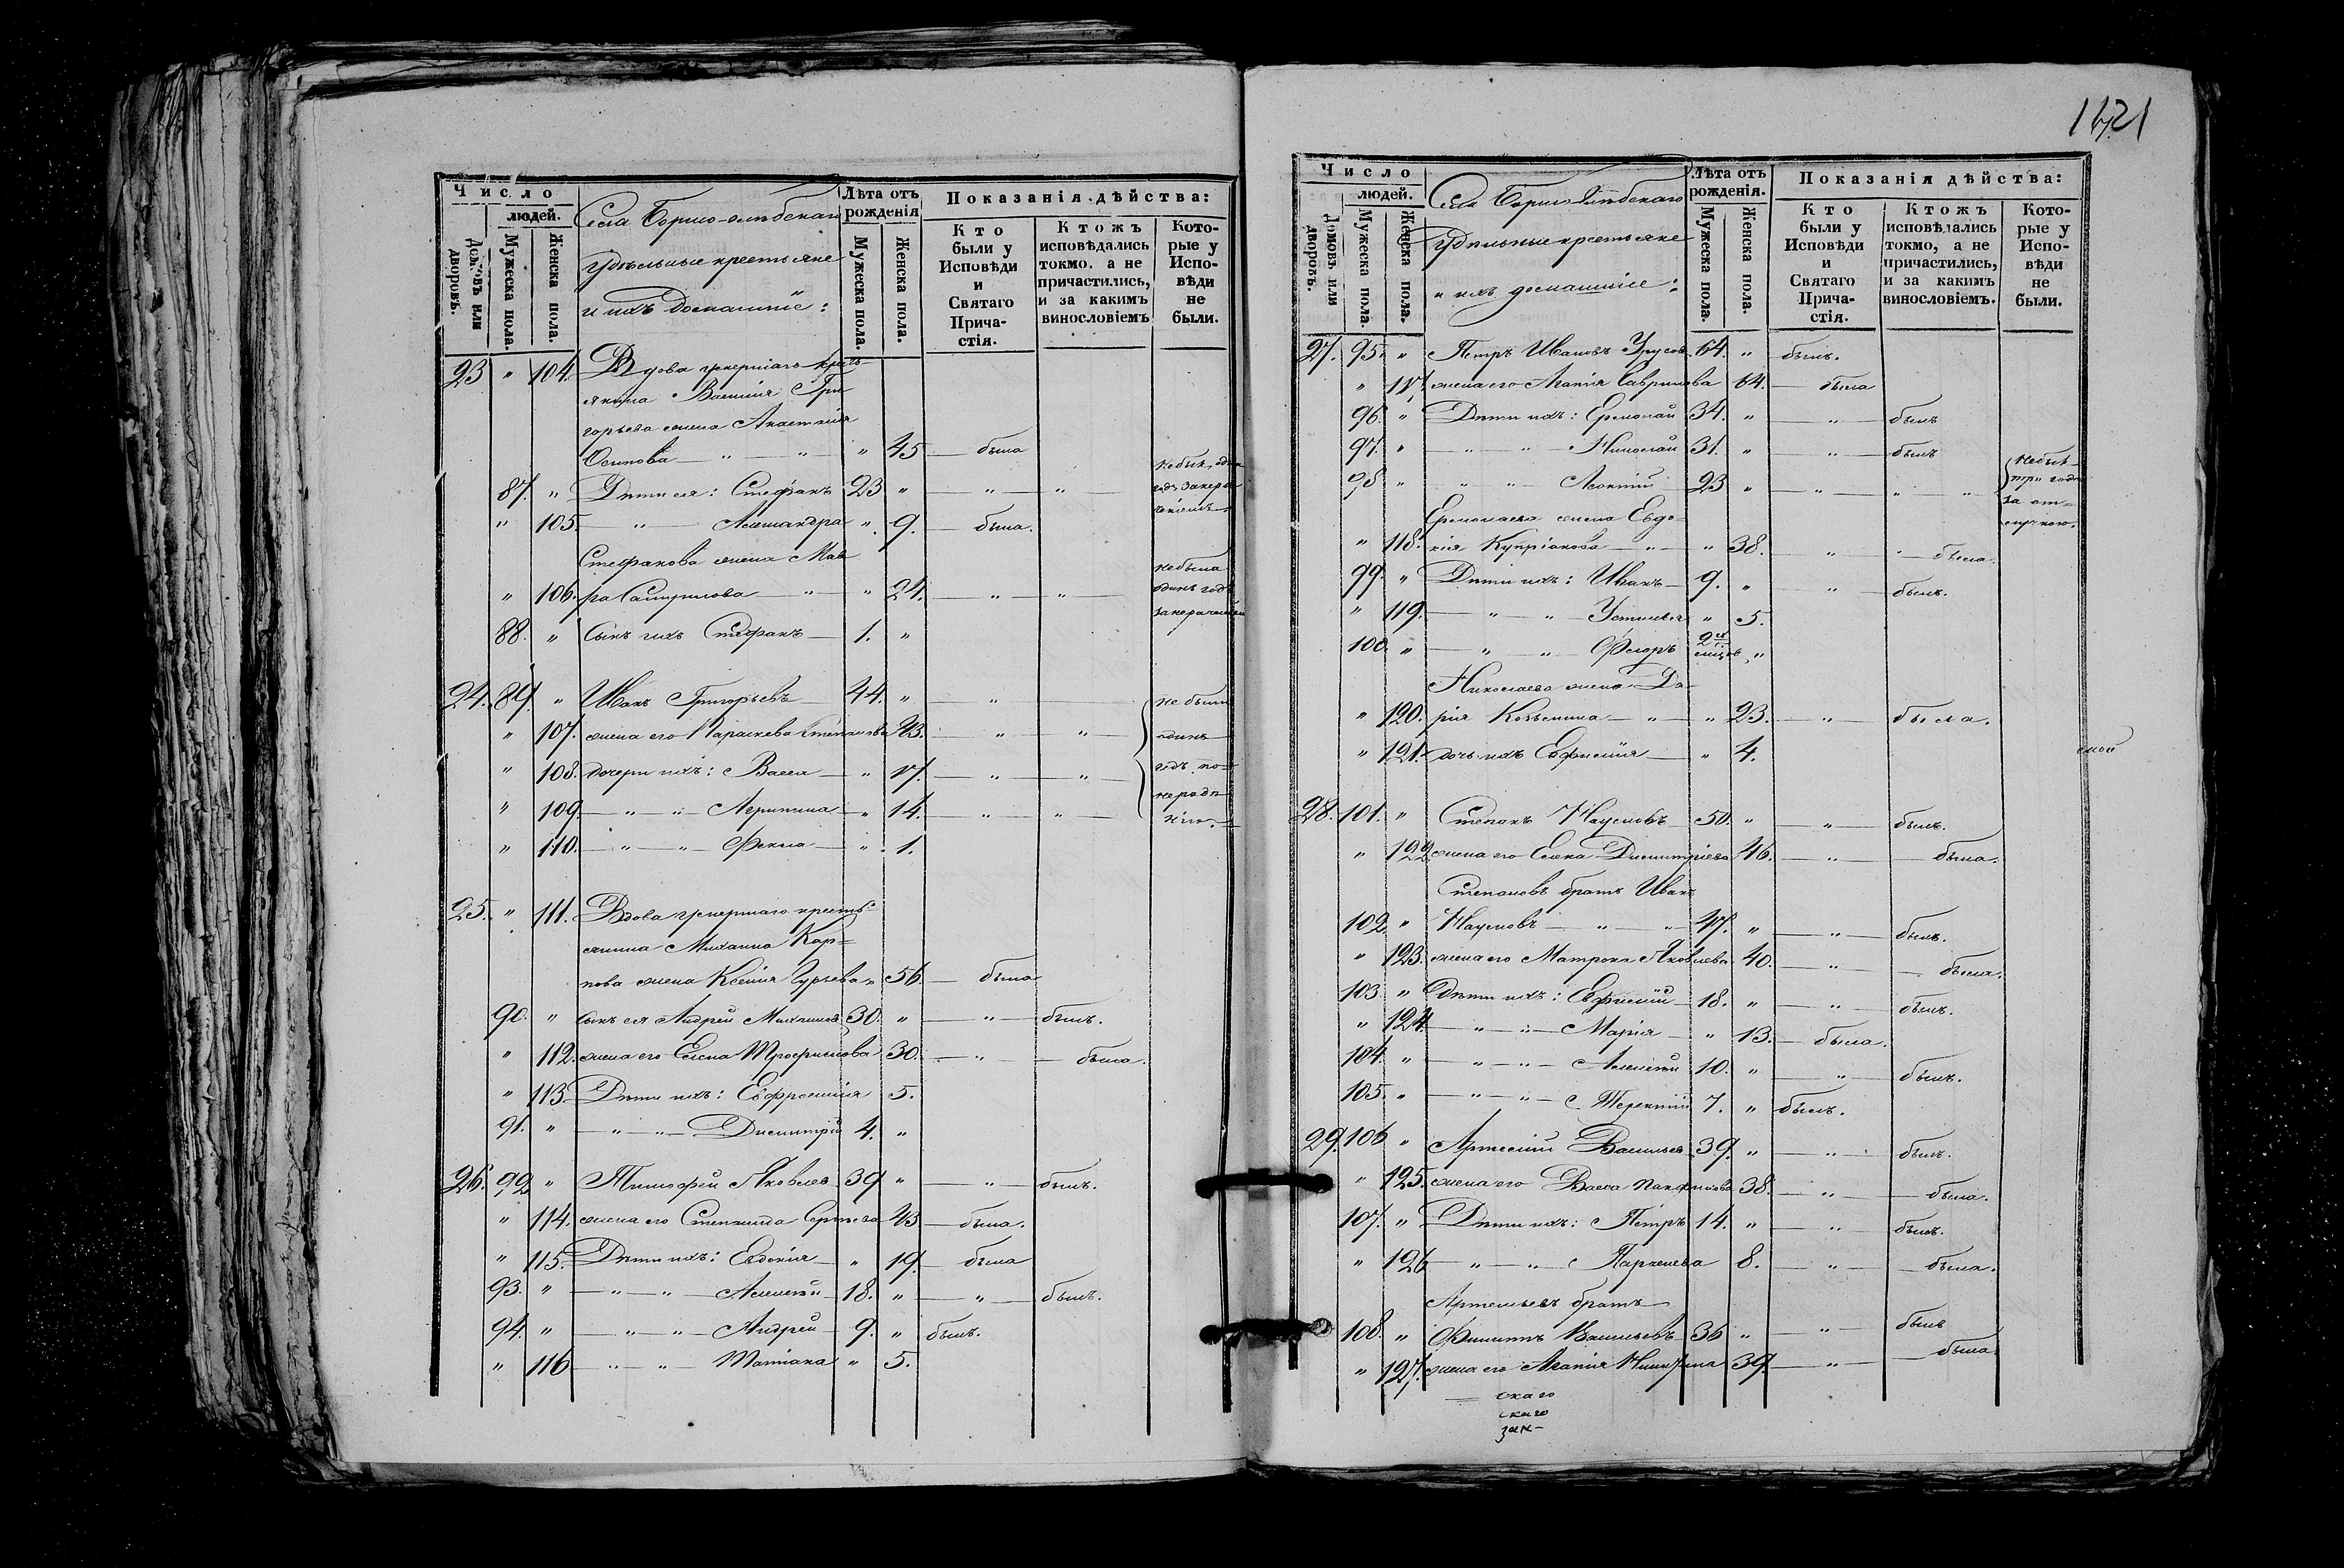 Число
людей.
Домовъ или дворовъ.
Мужеска пола.
Женска пола.
Села Борисо-глѣбскаго
удѣльные крестьяне
и ихъ домашніе:
Лѣта отъ рожденія
Мужеска пола.
Женска пола.
Показанія дѣйства:
Кто были у Исповѣди и Святаго Причастія.
Ктожъ исповѣдались токмо, а не причастились, и за какимъ винословіемъ
Которые у Исповѣди не были.
23 " 104. Вдова умершаго кресть-
янина Василія Гри
горьева жена Анастасія
Осипова " " " 45 была
87. " Дѣти ея: Стефанъ 23 " " "
" 105. " Александра " 9. была.
Стефанова жена Мав
" 106. ра Самуилова " " 24. " " не была одинъ годъ
88. " Сынъ ихъ Стефанъ 1. "
24. 89. " Иванъ Григорьевъ 44. " " не были
" 107. жена его Параскева 43. " " одинъ
" 108. дочери ихъ: Васса " 17. " " годъ по
" 109. " " Агрипина " 14. " " неради
" 110. " " Фекла " 1.
25. " 111. Вдова умершаго кресть-
янина Михаила Кар=
пова жена Ксенія Гурьева " 56 была
90. " сынъ ея Андрей Михайловъ 30. " " былъ.
" 112. жена его Елена Трофимова 30. " была.
" 113. Дѣти ихъ: Евфросинія 5.
91. " " " Димитрій 4. "
26. 92 " Тимофей Яковлевъ 39 " " былъ.
" 114. жена его Степанида Сергѣева 43 была.
" 115. Дѣти ихъ: Евдокія " 19. была
93. " " " Алексѣй 18. " " былъ.
94. " " " Андрей 9. " былъ.
" 116 " " Татіана " 5.
1421
Число
людей.
Домовъ или дворовъ.
Мужеска пола.
Женска пола.
Села Борисо-Глѣбскаго
удѣльные крестьяне
и ихъ домашніе:
Лѣта отъ рожденія.
Мужеска пола.
Женска пола.
Показанія дѣйства:
Кто были у Исповѣди и Святаго Причастія.
Ктожъ исповѣдались токмо, а не причастились, и за какимъ винословіемъ.
Которые у Исповѣди не были.
27. 95. " Петръ Ивановъ 64. " былъ.
" 117. жена его Агапія Гаврилова 64. была
96. " Дѣти ихъ: Ермолай 34. " " былъ
97. " " " Николай 31. " " былъ
98 " " " 23 " " " " не былъ три года за от=лучкою.
Ермолаева жена Евдо-
" 118. кія Купріанова " " 38. " " была.
99. " Дѣти ихъ: Иванъ 9. " " былъ.
" 119. " " Устинья " 5.
100. " " " Ѳедоръ 2 "
Николаева жена Да-
" 120. рія Козьмина " " 23. " была.
" 121. дочь ихъ Евфимія " 4.
28. 101. " Степанъ Наумовъ 50. " " былъ.
" 122. жена его Елена Димитріева 46. " была.
Степановъ братъ Иванъ
102 " Наумовъ " " 47. " " былъ.
" 123. жена его Матрона Яковлева 40. " была.
103 " Дѣти ихъ: Евфимій 18. " " былъ.
" 124. " " Марія " 13. была.
104. " " " Алексѣй 10. " " былъ.
105. " " " Терентій 7. " былъ.
29. 106 " Артемій Васильевъ 39. " " былъ.
" 125. жена его Васса Панфилова 38. " была.
107. " Дѣти ихъ: Петръ 14. " " былъ.
" 126 " " Параскева 8. " была.
Артемьевъ братъ
108. " Филиппъ Васильевъ 36 " " былъ
" 127. жена его Агапія Никитина 39. " была.
скаго
скаго
зан-